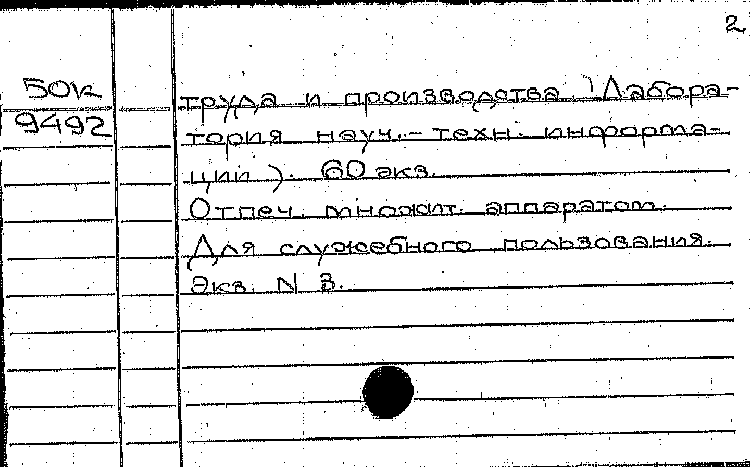 2
50к
9492
труда и производства. Лабора-
тория науч.-техн. информа-
ции). 60 экз.
Отпеч. множит. аппаратом.
Для служебного пользования.
Экз. N 3.